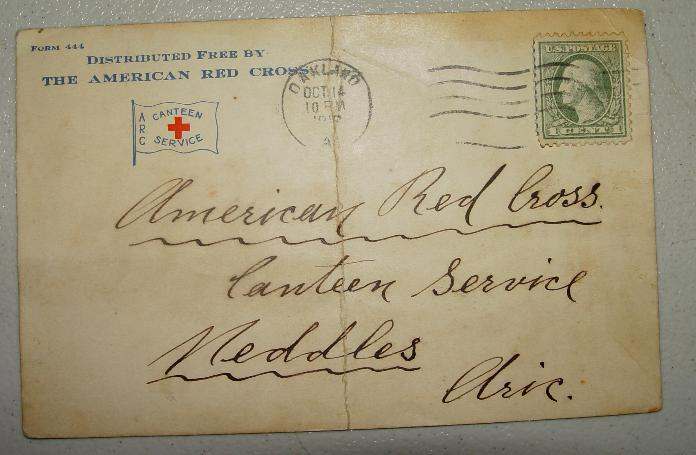 Form 444
Distributed Free by
THE AMERICAN RED CROSS
ARC
CANTEEN
SERVICE
OAKLAND
OCT 14
10 PM
U.S. POSTAGE
1 CENT 1
American Red Cross.
Canteen Service
Neddles
Aric.